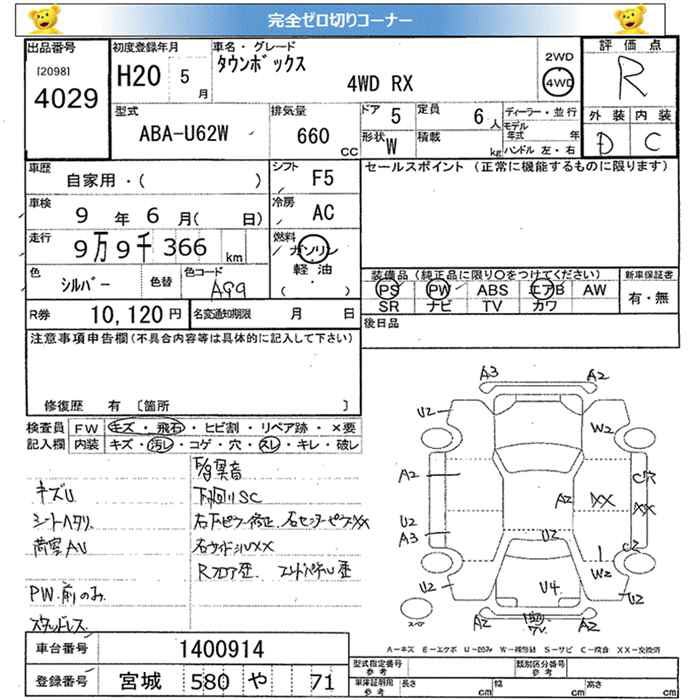 完全ゼロ切りコーナー
出品番号
[2098]
4029
初度登録年月
H20 5
月
車名・グレード
タウンボックス
4WD RX
2WD
4WD
評価点
R
型式
ABA-U62W
排気量
660
CC
ドア 5
定員 6
人
形状 W
積載
kg
ディーラー・並行
モデル
年式 年
ハンドル 左・右
外装 内装
D C
車歴
自家用・( )
シフト F5
セールスポイント (正常に機能するものに限ります)
車検
9 年 6 月( 日)
冷房 AC
走行
9万9千366 km
燃料 ガソリン
軽油
( ・ )
色 シルバー
色替
色コード A99
装備品 (純正品に限り○をつけてください)
PS PW ABS エアB AW
SR ナビ TV カワ
新車保証書
有・無
R券 10,120 円
名変通知期限 月 日
後日品
注意事項申告欄(不具合内容等は具体的に記入して下さい)
修復歴 有 [箇所 ]
検査員 FW キズ・飛石・ヒビ割・リペア跡・×要
記入欄 内装 キズ・汚レ・コゲ・穴・スレ・キレ・破レ
キズU
シートヘタリ
荷室AU
PW.前のみ
スタッドレス
下廻りSC
右サイドシルXX
Rフロア歪 エンドパネル歪
A3 A2
U2 W2
A2 A2 XX C穴
U2 XX
A3 U2
C2
W2
U2 U4 U2
A2 A2
A-キズ E-エクボ U-凹み W-補修跡 S-サビ C-腐食 XX-交換済
車台番号 1400914
登録番号 宮城 580 や 71
型式指定番号
参考
類別区分番号
参考
車庫証明用
参考
長さ cm
幅 cm
高さ cm